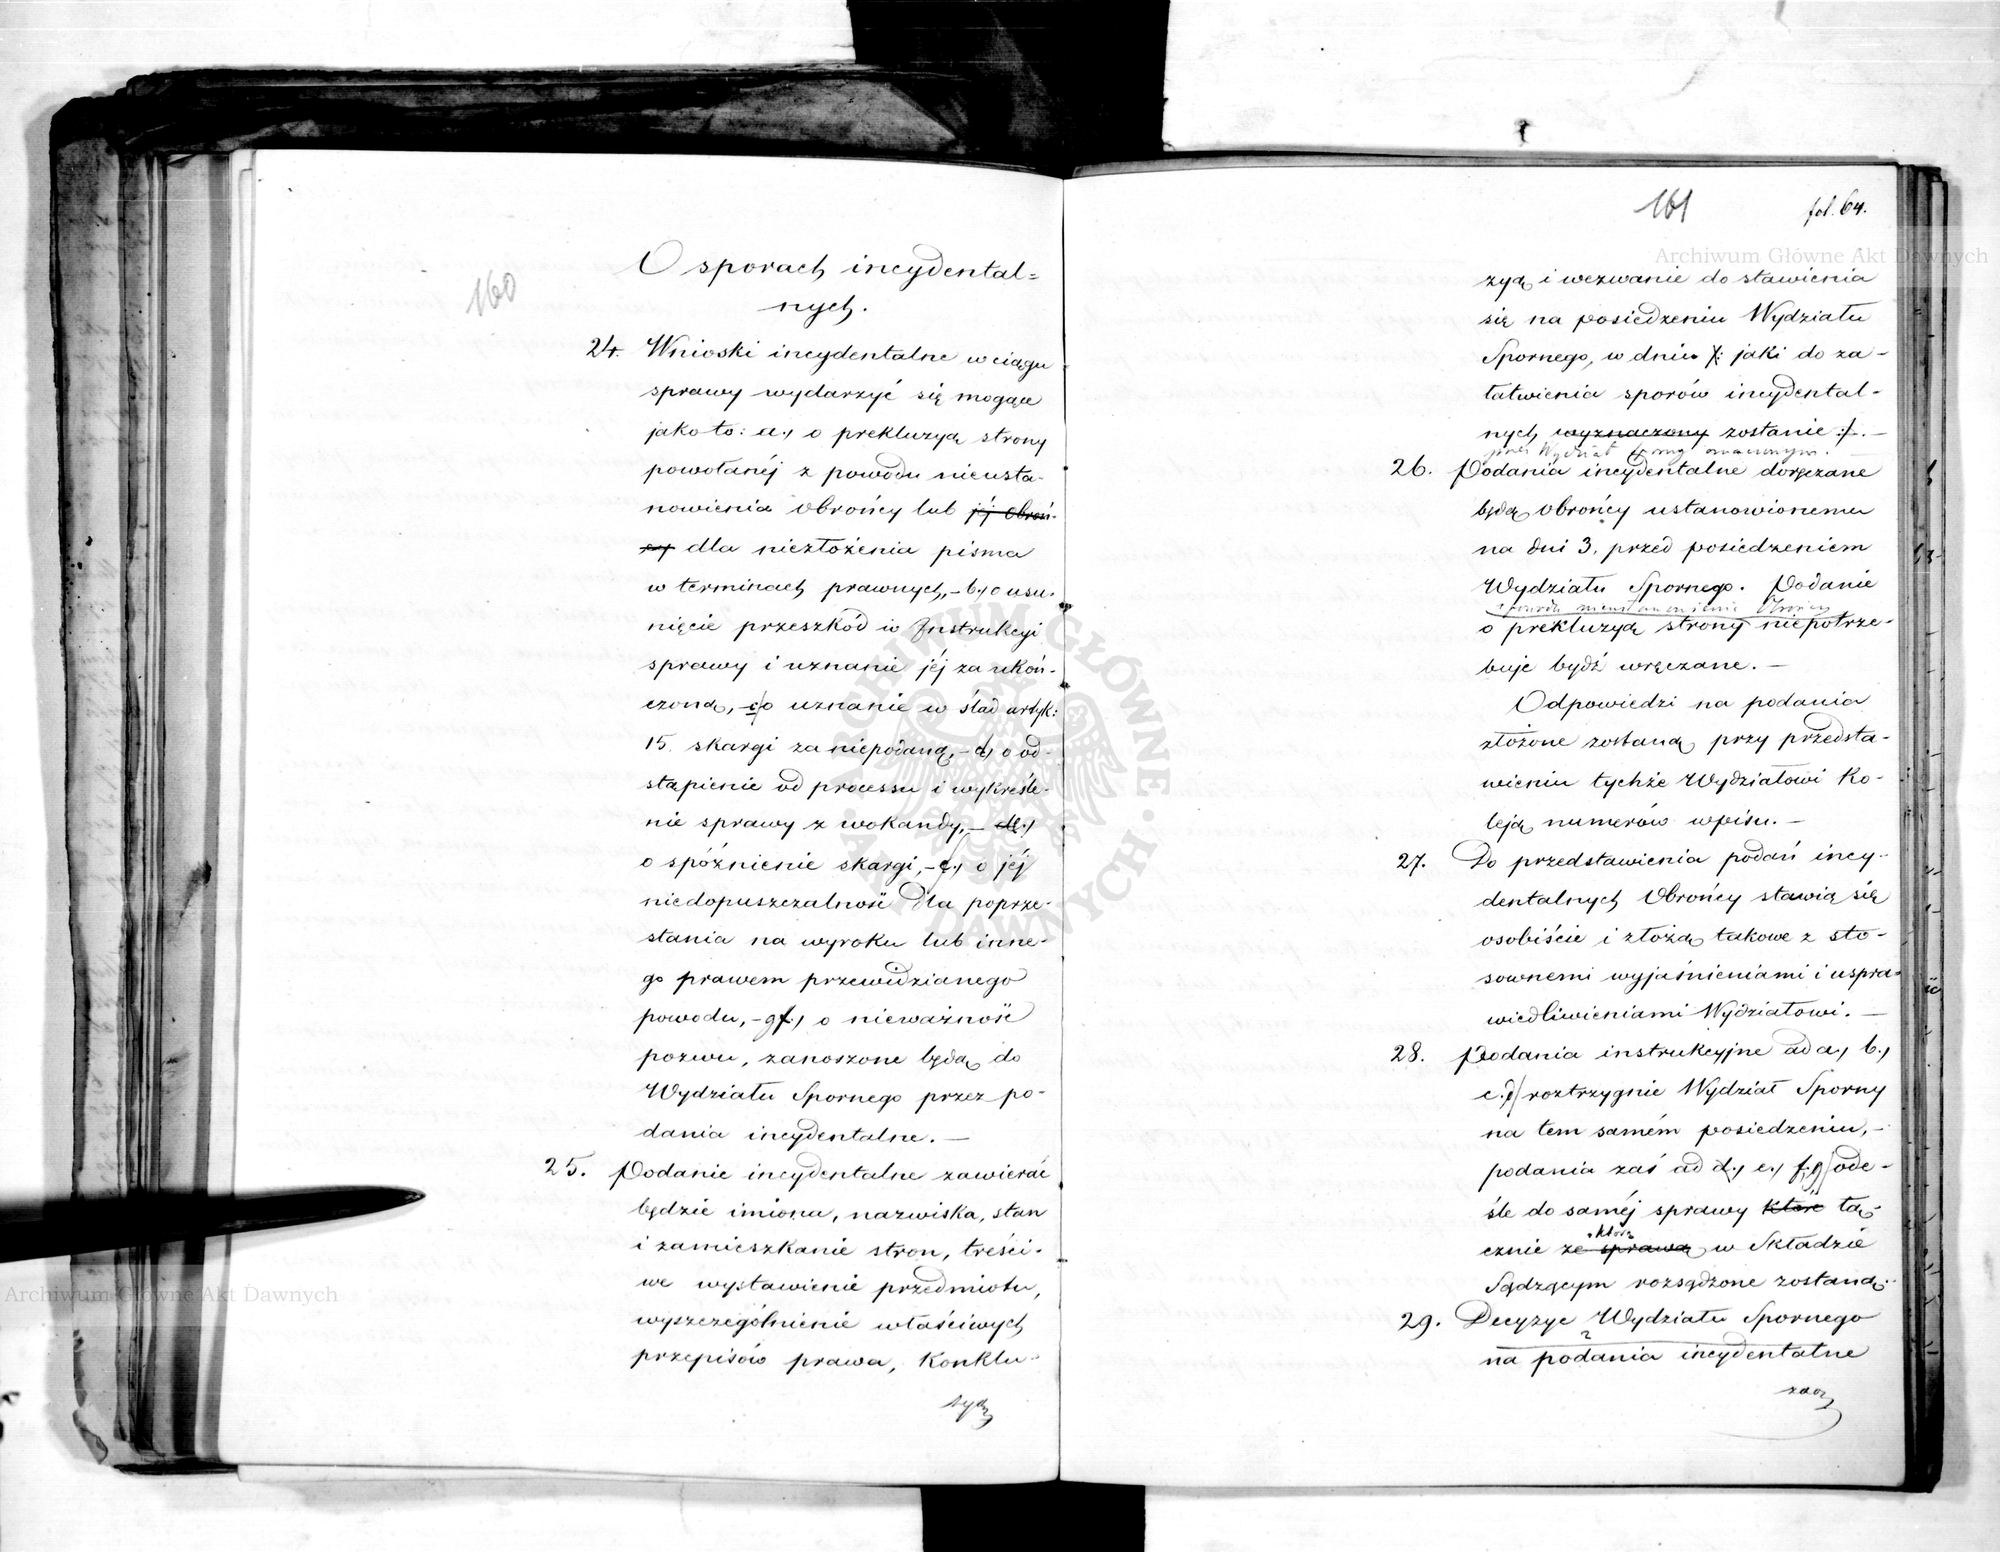 160
O sporach incydental=
nych.
24. Wnioski incydentalne w ciągu
sprawy wydarzyć się mogące
jako to: a., o prekluzyą strony
powołanéj z powodu nieusta-
nowienia obrońcy lub jéj obroń-
cy dla niezłożenia pisma
w terminach prawnych, - b., o usu-
nięcie przeszkód w Instrukcyi
sprawy i uznanie jéj za ukoń-
czoną, - c/ o uznanie w ślad artyk:
15. skargi za niepodaną, - d., o od-
stąpienie od processu i wykreśle-
nie sprawy z wokandy, -
o spóźnienie skargi, - f., o jéj
niedopuszczalność dla poprze-
stania na wyroku lub inne-
go prawem przewidzianego
powodu, - g f., o nieważność
pozwu, zanoszone będą do
Wydziału Spornego przez po-
dania incydentalne. —
25. Podanie incydentalne zawierać
będzie imiona, nazwiska, stan
i zamieszkanie stron, treści-
we wystawienie przedmiotu,
wyszczególnienie właściwych
przepisów prawa, konklu-
zyą
161
fol. 64.
zyą i wezwanie do stawienia
się na posiedzeniu Wydziału
Spornego, w dniu /: jaki do za-
łatwienia sporów incydental-
nych wyznaczony zostanie :/. —
przez Wydział
26. Podania incydentalne doręczane
będą obrońcy ustanowionemu
na dni 3. przed posiedzeniem
Wydziału Spornego. Podanie
z powodu nieustanowienia Obrońcy
o prekluzyą strony niepotrze-
buje bydź wręczane. —
Odpowiedzi na podania
złożone zostaną przy przedsta-
wieniu tychże Wydziałowi Ko-
leją numerów wpisu. —
27. Do przedstawienia podań incy-
dentalnych Obrońcy stawią się
osobiście i złożą takowe z sto-
sownemi wyjaśnieniami i uspra-
wiedliwieniami Wydziałowi. —
28. Podania instrukcyjne ad a., b.,
c. d/ roztrzygnie Wydział Sporny
na tem samém posiedzeniu, -
podania zaś ad d., e., f., g/ ode-
śle do saméj sprawy które łą-
którą
cznie ze sprawą w Składzie
Sądzącym rozsądzone zostaną.
29. Decyzye Wydziału Spornego
na podania incydentalne
zaoz
Archiwum Główne Akt Dawnych
Archiwum Główne Akt Dawnych
ARCHIWUM GŁÓWNE AKT DAWNYCH